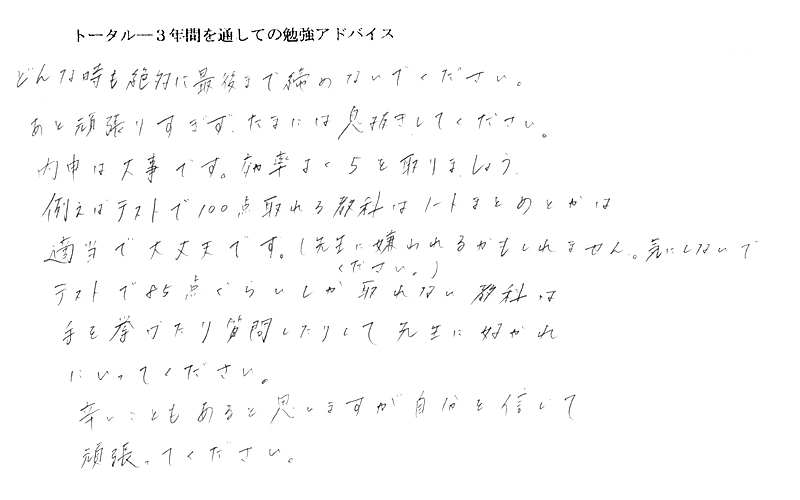 トータルー３年間を通しての勉強アドバイス
どんな時も絶対に最後まで締めないでください。
あと頑張りすぎず、たまには息抜きしてください。
内申は大事です。効率よく5を取りましょう。
例えばテストで100点取れる教科はノートまとめとかは
適当で大丈夫です。(先生に嫌われるかもしれません。気にしないで
ください。)
テストで85点ぐらいしか取れない教科は
手を挙げたり質問したりして先生に好かれ
にいってください。
辛いこともあると思いますが自分を信じて
頑張ってください。